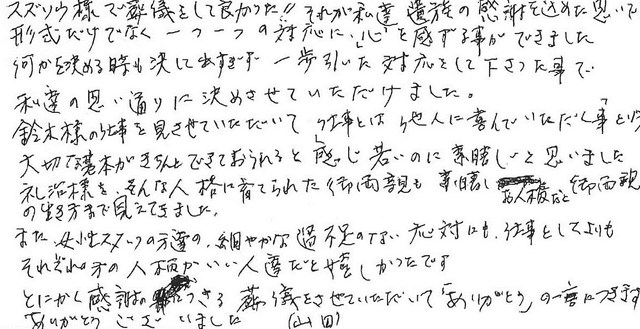 スズソウ様で葬儀をして良かった!! それが私達遺族の感謝を込めた思いです
形式だけでなく一つ一つの対応に「心」を感ずる事ができました
何かを決める時も決して出すぎず一歩引いた対応をして下さった事で
私達の思い通りに決めさせていただけました。
鈴木様の仕事を見させていただいて「仕事とは他人に喜んでいただく事」という
大切な基本がきちんとできておられると感じ若いのに素晴しいと思いました
礼治様を、そんな人格に育てられた御両親も素晴し お人様など御両親
の生き方まで見えてきました。
また、女性スタッフの方達の、細やかな過不足のない応対にも、仕事としてよりも
それぞれの方の人柄がいい人達だと嬉しかったです
とにかく感謝につきる葬儀をさせていただいて「ありがとう」の一言につきます
ありがとうございました (山田)